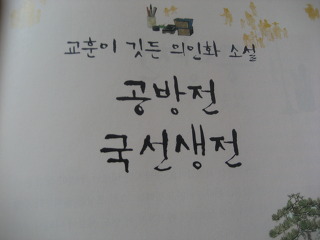 교훈이 깃든 의인화 소설
공방전
국선생전